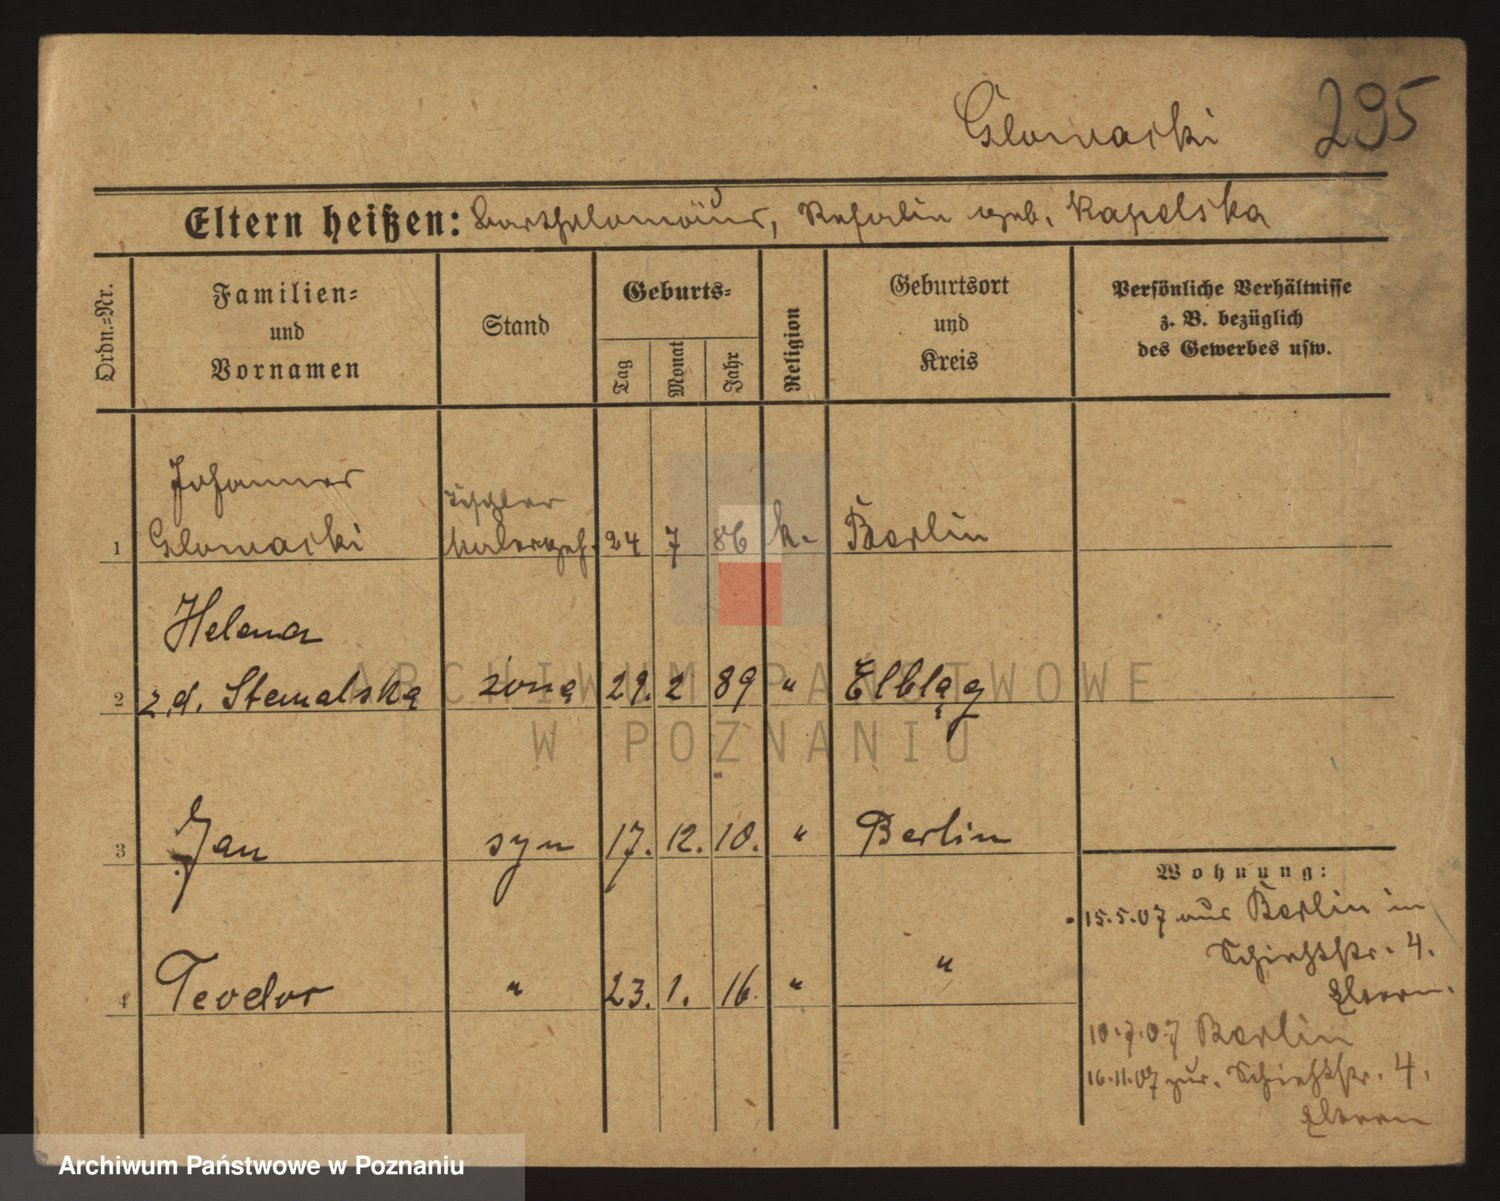 Glowacki 295
Eltern heißen: Bartholomäus, Rosalie geb. Kapelska
Ordn.=Nr.
Familien= und Vornamen
Stand
Geburts=
Tag
Monat
Jahr
Religion
Geburtsort und Kreis
Persönliche Verhältnisse
z. B. bezüglich
des Gewerbes usw.
Johannes Tischler
1 Glowacki Malergeh. 24 7 86 k. Berlin
Helena
2 z.d. żona 29. 2 89 " Elbląg
3 Jan syn 17. 12. 10. " Berlin
4 Teodor " 23. 1. 16. " "
Wohnung:
15.5.07 aus Berlin in
4.
Eltern.
10.7.07 Berlin
16.11.07 zur. 4.
Eltern
ARCHIWUM PAŃSTWOWE
W POZNANIU
Archiwum Państwowe w Poznaniu